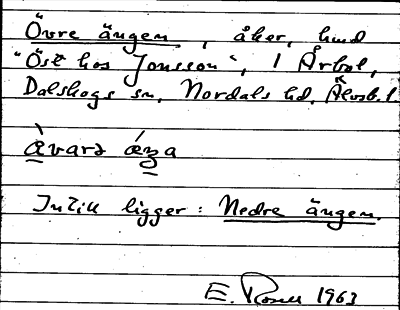 Övre ängen, åker, hmd
"Öst hos Jonsson", i Årbol,
Dalskogs sn, Nordals hd, Älvsb. l.
æ̀varə ǽŋa
Intill ligger: Nedre ängen.
E. Rosell 1963